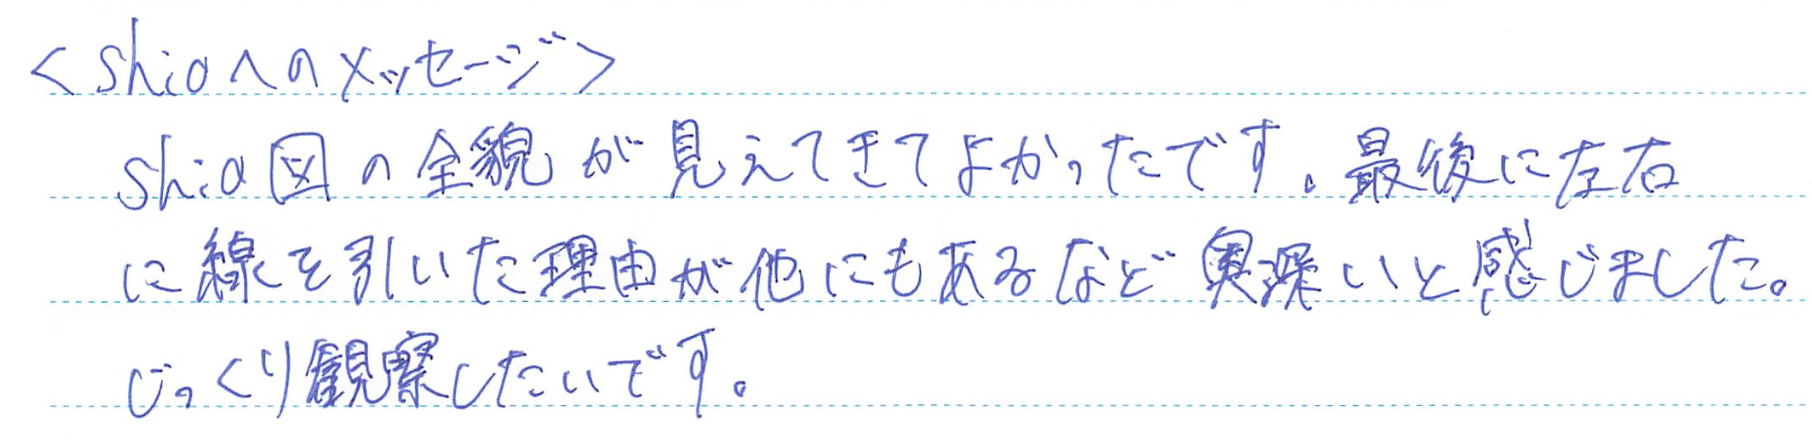 <shioへのメッセージ>
shio図の全貌が見えてきてよかったです。最後に左右
に線を引いた理由が他にもあるなど奥深いと感じました。
じっくり観察したいです。